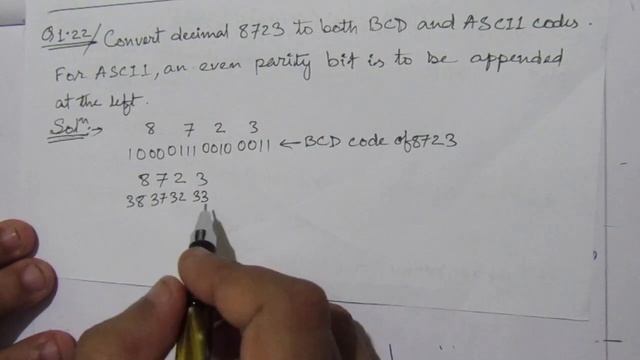 Q1.22/ Convert decimal 8723 to both BCD and ASCII codes.
For ASCII, an even parity bit is to be appended
at the left.
Solⁿ:→
8 7 2 3
1000 0111 0010 0011 ← BCD code of 8723
8 7 2 3
38 37 32 33